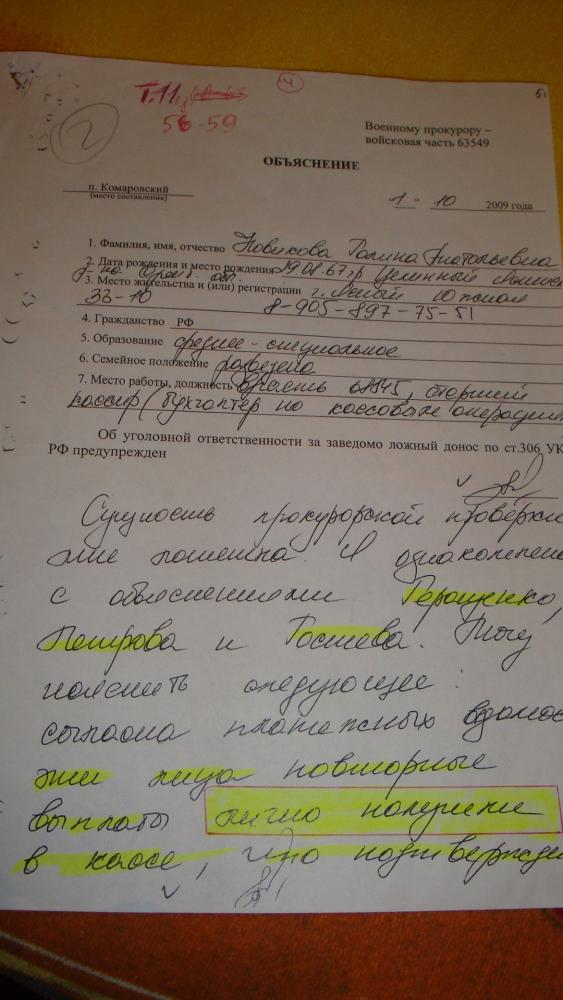 Т.11,
56-59
4
51
2
Военному прокурору –
войсковая часть 63549
ОБЪЯСНЕНИЕ
п. Комаровский
(место составления)
"1" 10 2009 года
1. Фамилия, имя, отчество Новикова Галина Анатольевна
2. Дата рождения и место рождения 29.08.67г.р
3. Место жительства и (или) регистрации г. Ясный Южная
33-10 8-905-897-75-51
4. Гражданство РФ
5. Образование средне-специальное
6. Семейное положение разведена
7. Место работы, должность в/часть 68545, старший
кассир (бухгалтер по кассовым операция
Об уголовной ответственности за заведомо ложный донос по ст.306 УК
РФ предупрежден
Сущность прокурорской проверки
мне понятна. Я ознакомлена
с объяснениями Геращенко,
Петрова и Гостева. Могу
пояснить следующее:
согласно платежных
эти лица повторные
выплаты лично получили
в кассе, что подтвержда